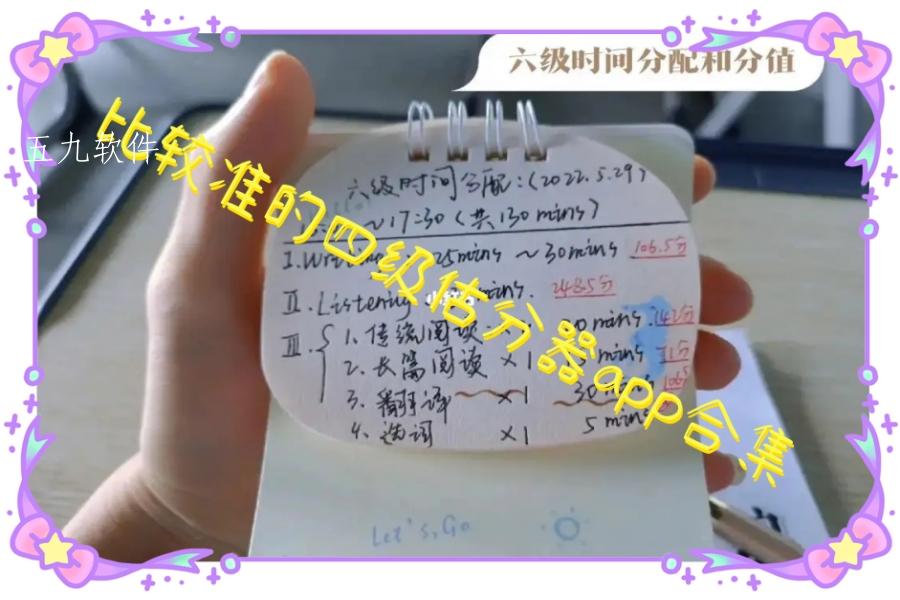 六级时间分配和分值
五九软件
比较准的四级估分器app合集
六级时间分配:(2022.5.29)
~17:30(共130mins)
I. 25mins ~ 30mins 106.5分
II. Listening mins. 248.5分
III. 1. 传统阅读 20mins 142分
2. 长篇阅读 ×1 mins 71分
3. 翻译 ×1 30 106.5
4. 选词 ×1 5 mins
Let's, Go